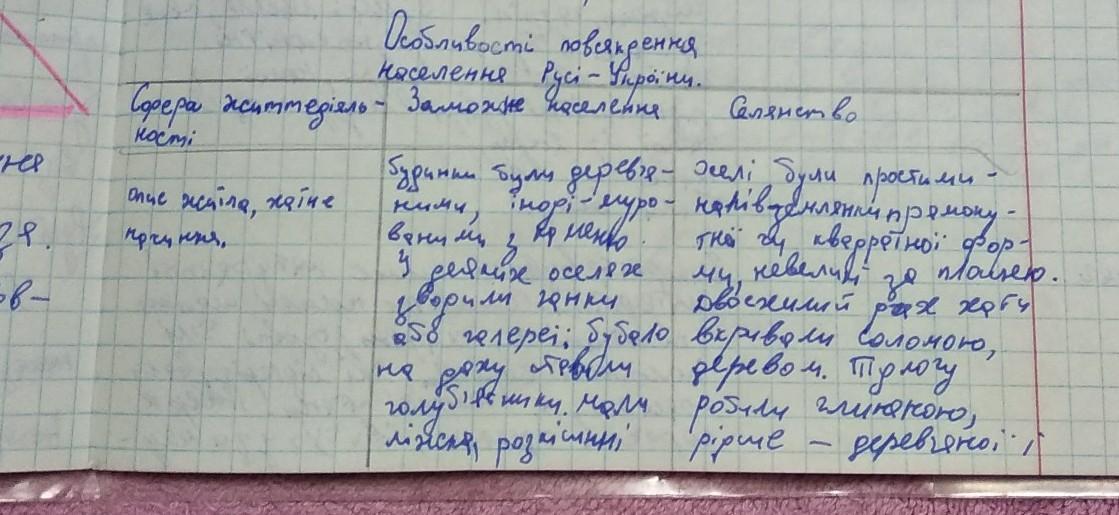 Особливості повсякдення
населення Русі-України.
Сфера життєдіяль-
ності
Заможне населення
Селянство
опис житла, хатнє
начиння.
будинки були дерев'я-
ними, іноді-муро-
ваними з каменю.
У деяких оселях
зводили ганки
або галереї; бувало
на даху ставили
голубівники. мали
ліжка, розкішні
оселі були простими -
напівземлянки прямоку-
тної чи квадратної фор-
ми, невеликі за площею.
Двосхилий дах хати
вкривали соломою,
деревом. Підлогу
робили глиняною,
рідше - дерев'яної і
ня
зя.
ов-